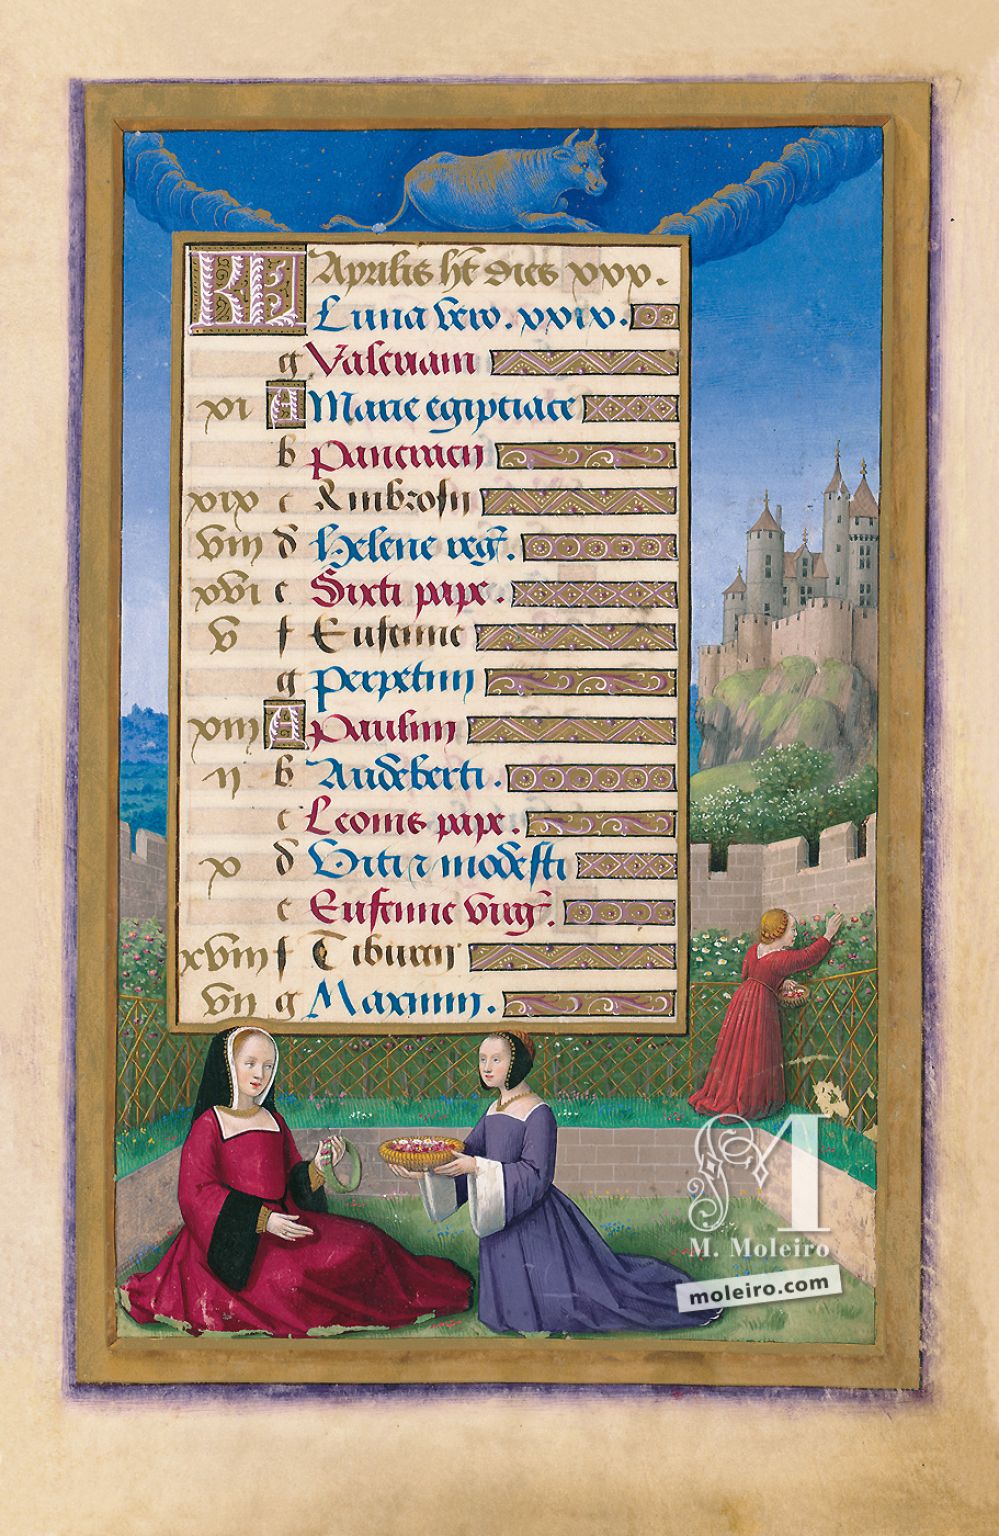 KL Aprilis ht dies xxx.
Luna vero. xxix.
g Valeriani
xi A Marie egiptiace
b Pancracii
xix c Ambrosii
viii d Helene reg.
xvi e Sixti pape.
v f Eufemie
g Perpetuii
xiii A Paulini
ii b Audeberti.
c Leonis pape.
x d Viti ⁊ modesti
e Eufemie virg.
xviii f Tiburcii
vii g Maximi.
M
M. Moleiro
moleiro.com